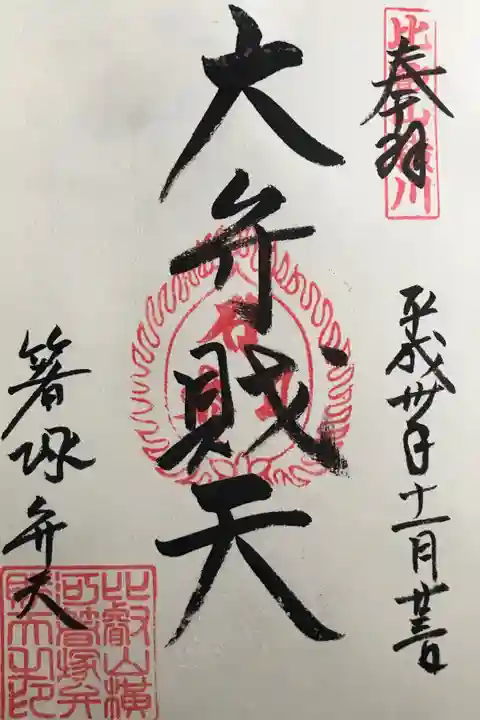 奉拝
比叡山横川
平成卅年十一月廿三日
大弁財天
箸塚弁天
比叡山横
川箸塚弁
財天之印